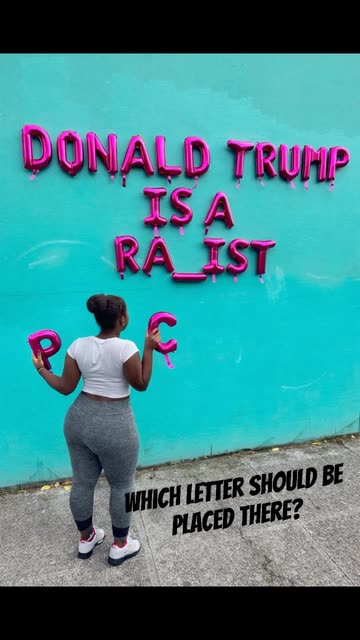 DONALD TRUMP
IS A
RA_IST
P C
WHICH LETTER SHOULD BE
PLACED THERE?